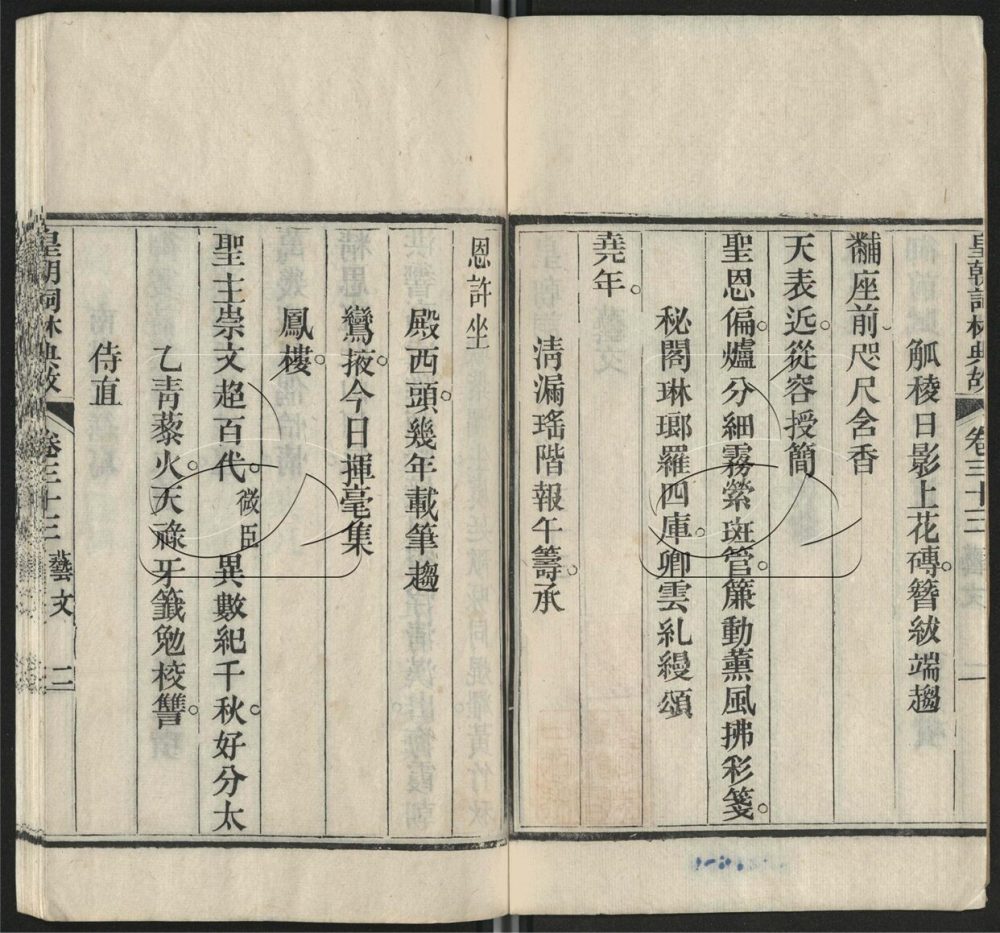 皇朝詞林典故 卷三十三
觚稜日影上花磚。簪紱端趨
黼座前。咫尺含香
天表近。從容授簡
聖恩偏。爐分細霧縈斑管。簾動薰風拂彩箋。
秘閣琳瑯羅四庫。卿雲糺縵頌
堯年。
淸漏瑤階報午籌。承
恩許坐
殿西頭。幾年載筆趨
鸞掖。今日揮毫集
鳳樓。
聖主崇文超百代。微臣異數紀千秋。好分太
乙靑藜火。天祿牙籤勉校讐。
侍直
皇朝詞林典故 卷三十三 藝文 二